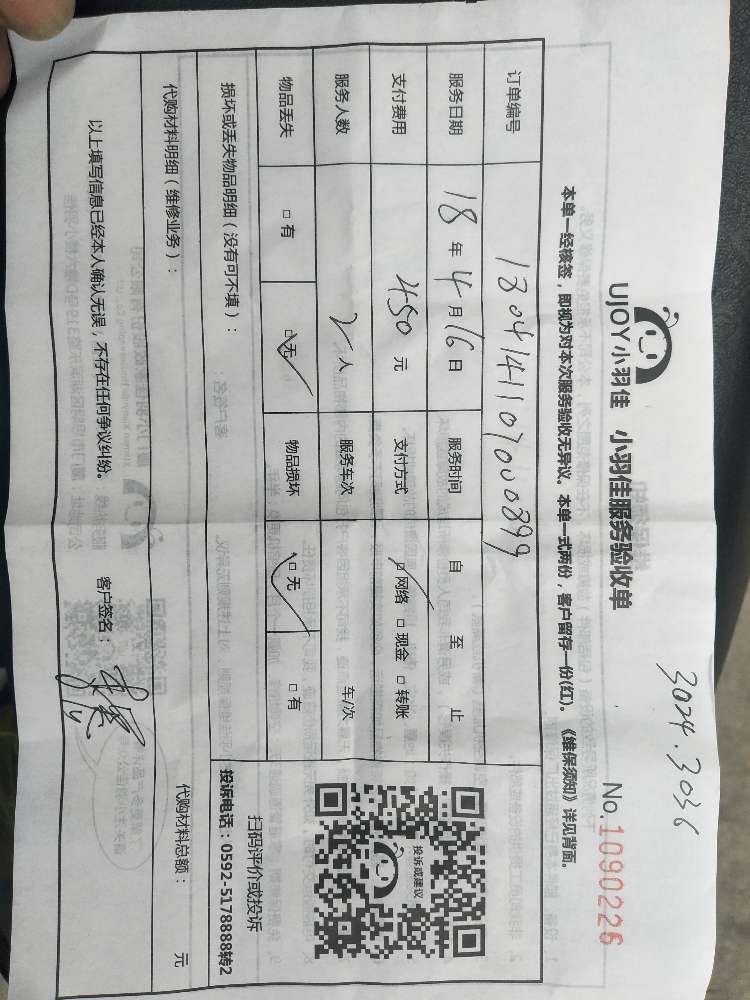 3024.3036
UJOY小羽佳 小羽佳服务验收单 No.1090226
本单一经核签,即视为对本次服务验收无异议。本单一式两份,客户留存一份(红)。《维保须知》详见背面。
订单编号
服务日期 18年4月16日 服务时间 自 至 止
支付费用 450元 支付方式 □网络 □现金 □转账
服务人数 2人 服务车次 车/次
物品丢失 □有 □无 物品损坏 □无 □有
投诉或建议
扫码评价或投诉
投诉电话:0592-5178888转2
损坏或丢失物品明细(没有可不填):
代购材料明细(维修业务): 代购材料总额: 元
以上填写信息已经本人确认无误,不存在任何争议纠纷。 客户签名: